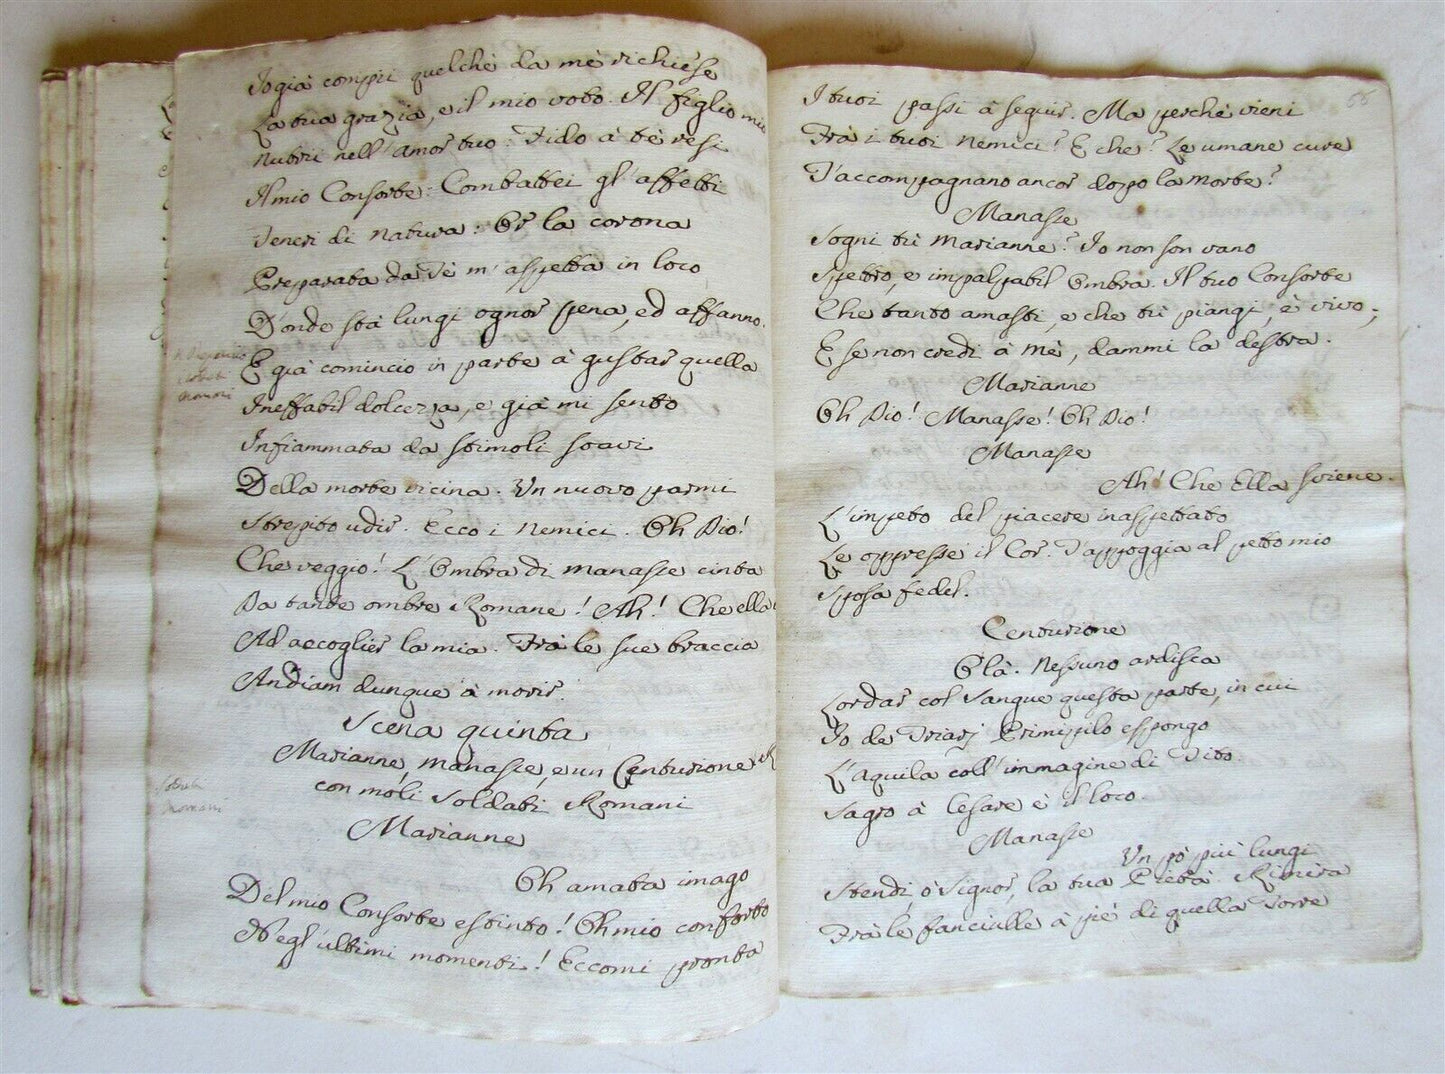 Io già compii quelchè da mè richiese
La tua grazia, e il mio voto. Il figlio mio
Nutrii nell'amor tuo: Fido à tè resi
Il mio Consorte: Combattei gl'affetti
Teneri di natura: Or la corona
Preparata da Tè m'aspetta in loco
D'onde stà lungi ognor pena, ed affanno.
E già comincio in parte à gustar quella
Ineffabil dolcezza, e già mi sento
Infiammata da stimoli soavi
Della morte vicina. Un nuovo parmi
Strepito udir. Ecco i Nemici. Oh Dio!
Che veggio! L'Ombra di Manasse cinta
Da tante ombre Romane! Ah! Che ella
Ad accoglier la mia. Frà le sue braccia
Andiam dunque à morir.
Scena quinta
Marianne, Manasse, e un Centurione
con molti Soldati Romani
Marianne
Oh amata imago
Del mio Consorte estinto! Oh mio conforto
Negl'ultimi momenti! Eccomi pronta
Soldati
Romani
66
I tuoi passi à seguir. Ma perchè vieni
Frà i tuoi Nemici? E che? Le umane cure
T'accompagnano ancor dopo la Morte?
Manasse
Sogni tù Marianne? Io non son vano
Spettro, e impalpabil Ombra. Il tuo Consorte
Che tanto amasti, e che tù piangi, è vivo;
E se non credi à mè, dammi la destra.
Marianne
Oh Dio! Manasse! Oh Dio!
Manasse
Ah! Che Ella sviene.
L'impeto del piacere inaspettato
Le oppresse il Cor. T'appoggia al petto mio
Sposa fedel.
Centurione
Olà. Nessuno ardisca
Lordar col Sangue questa parte, in cui
Io de Triarj Primipilo espongo
L'Aquila coll'immagine di Tito.
Sagro à Cesare è il loco.
Manasse
Un pò più lungi
Stendi, ò Signor, la tua Pietà. Rimira
Frà le fanciulle à piè di quella Torre